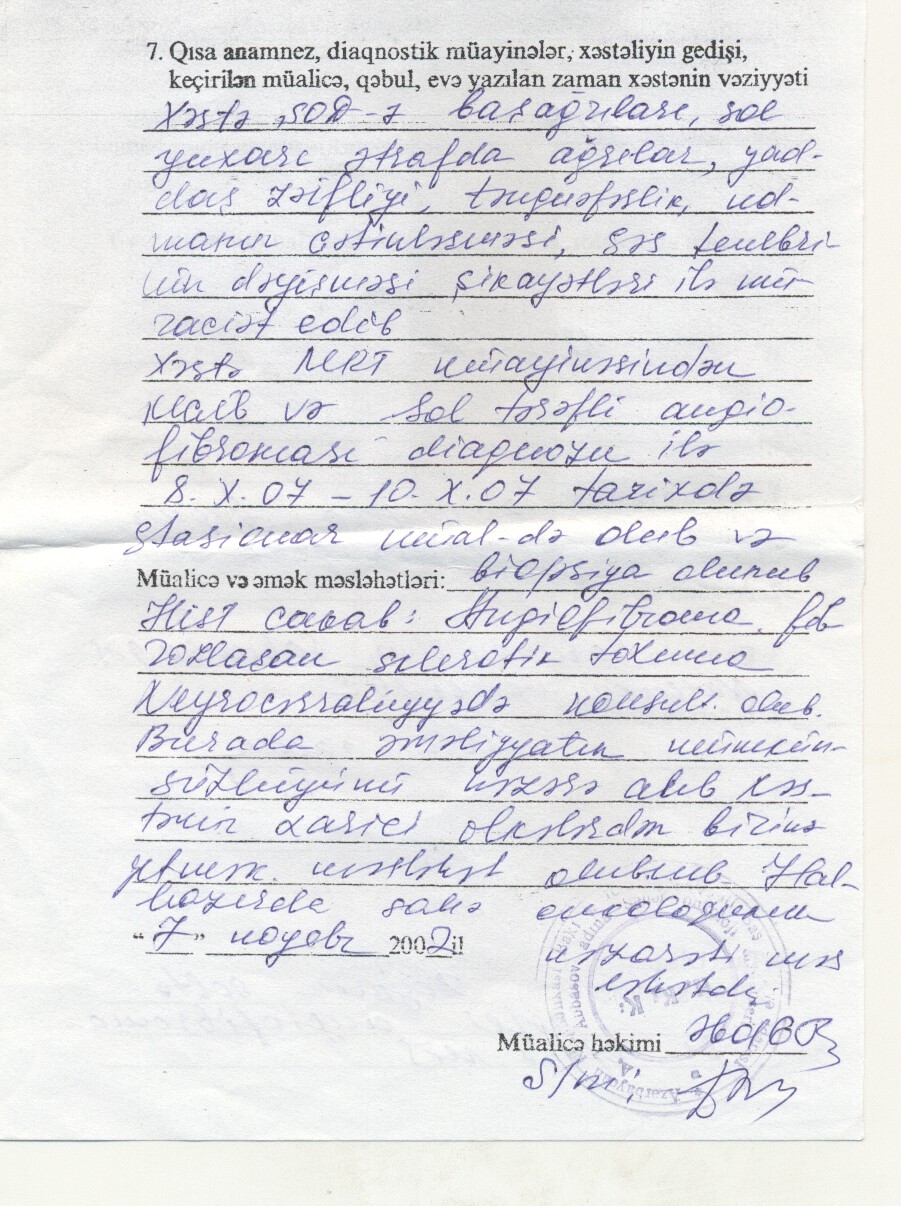 7. Qısa anamnez, diaqnostik müayinələr, xəstəliyin gedişi,
keçirilən müalicə, qəbul, evə yazılan zaman xəstənin vəziyyəti
Xəstə başağrıları, sol
yuxarı ətrafda ağrılar, yad-
daş zəifliyi, təngnəfəslik, ud-
manın çətinləşməsi, səs tembri-
nin dəyişməsi şikayətləri ilə mü-
raciət edib
Xəstə MRT müayinəsindən
və sol tərəfli angio-
fibroması diagnozu ilə
8. X. 07 – 10. X. 07 tarixdə
stasionar müal-də olub və
Müalicə və əmək məsləhətləri: biopsiya olunub
Hist cavab: Angiofibroma
sklerotik toxuma
Neyrocərrahiyyədə konsult. olub.
Burada əməliyyatın mümkün-
süzlüyünü nəzərə alıb xəs-
tənin xarici ölkələrdən birinə
getmək məsləhət olunub Hal-
hazırda sahə oncoloqunun
"7" noyabr 2007 il
nəzarəti
Müalicə həkimi